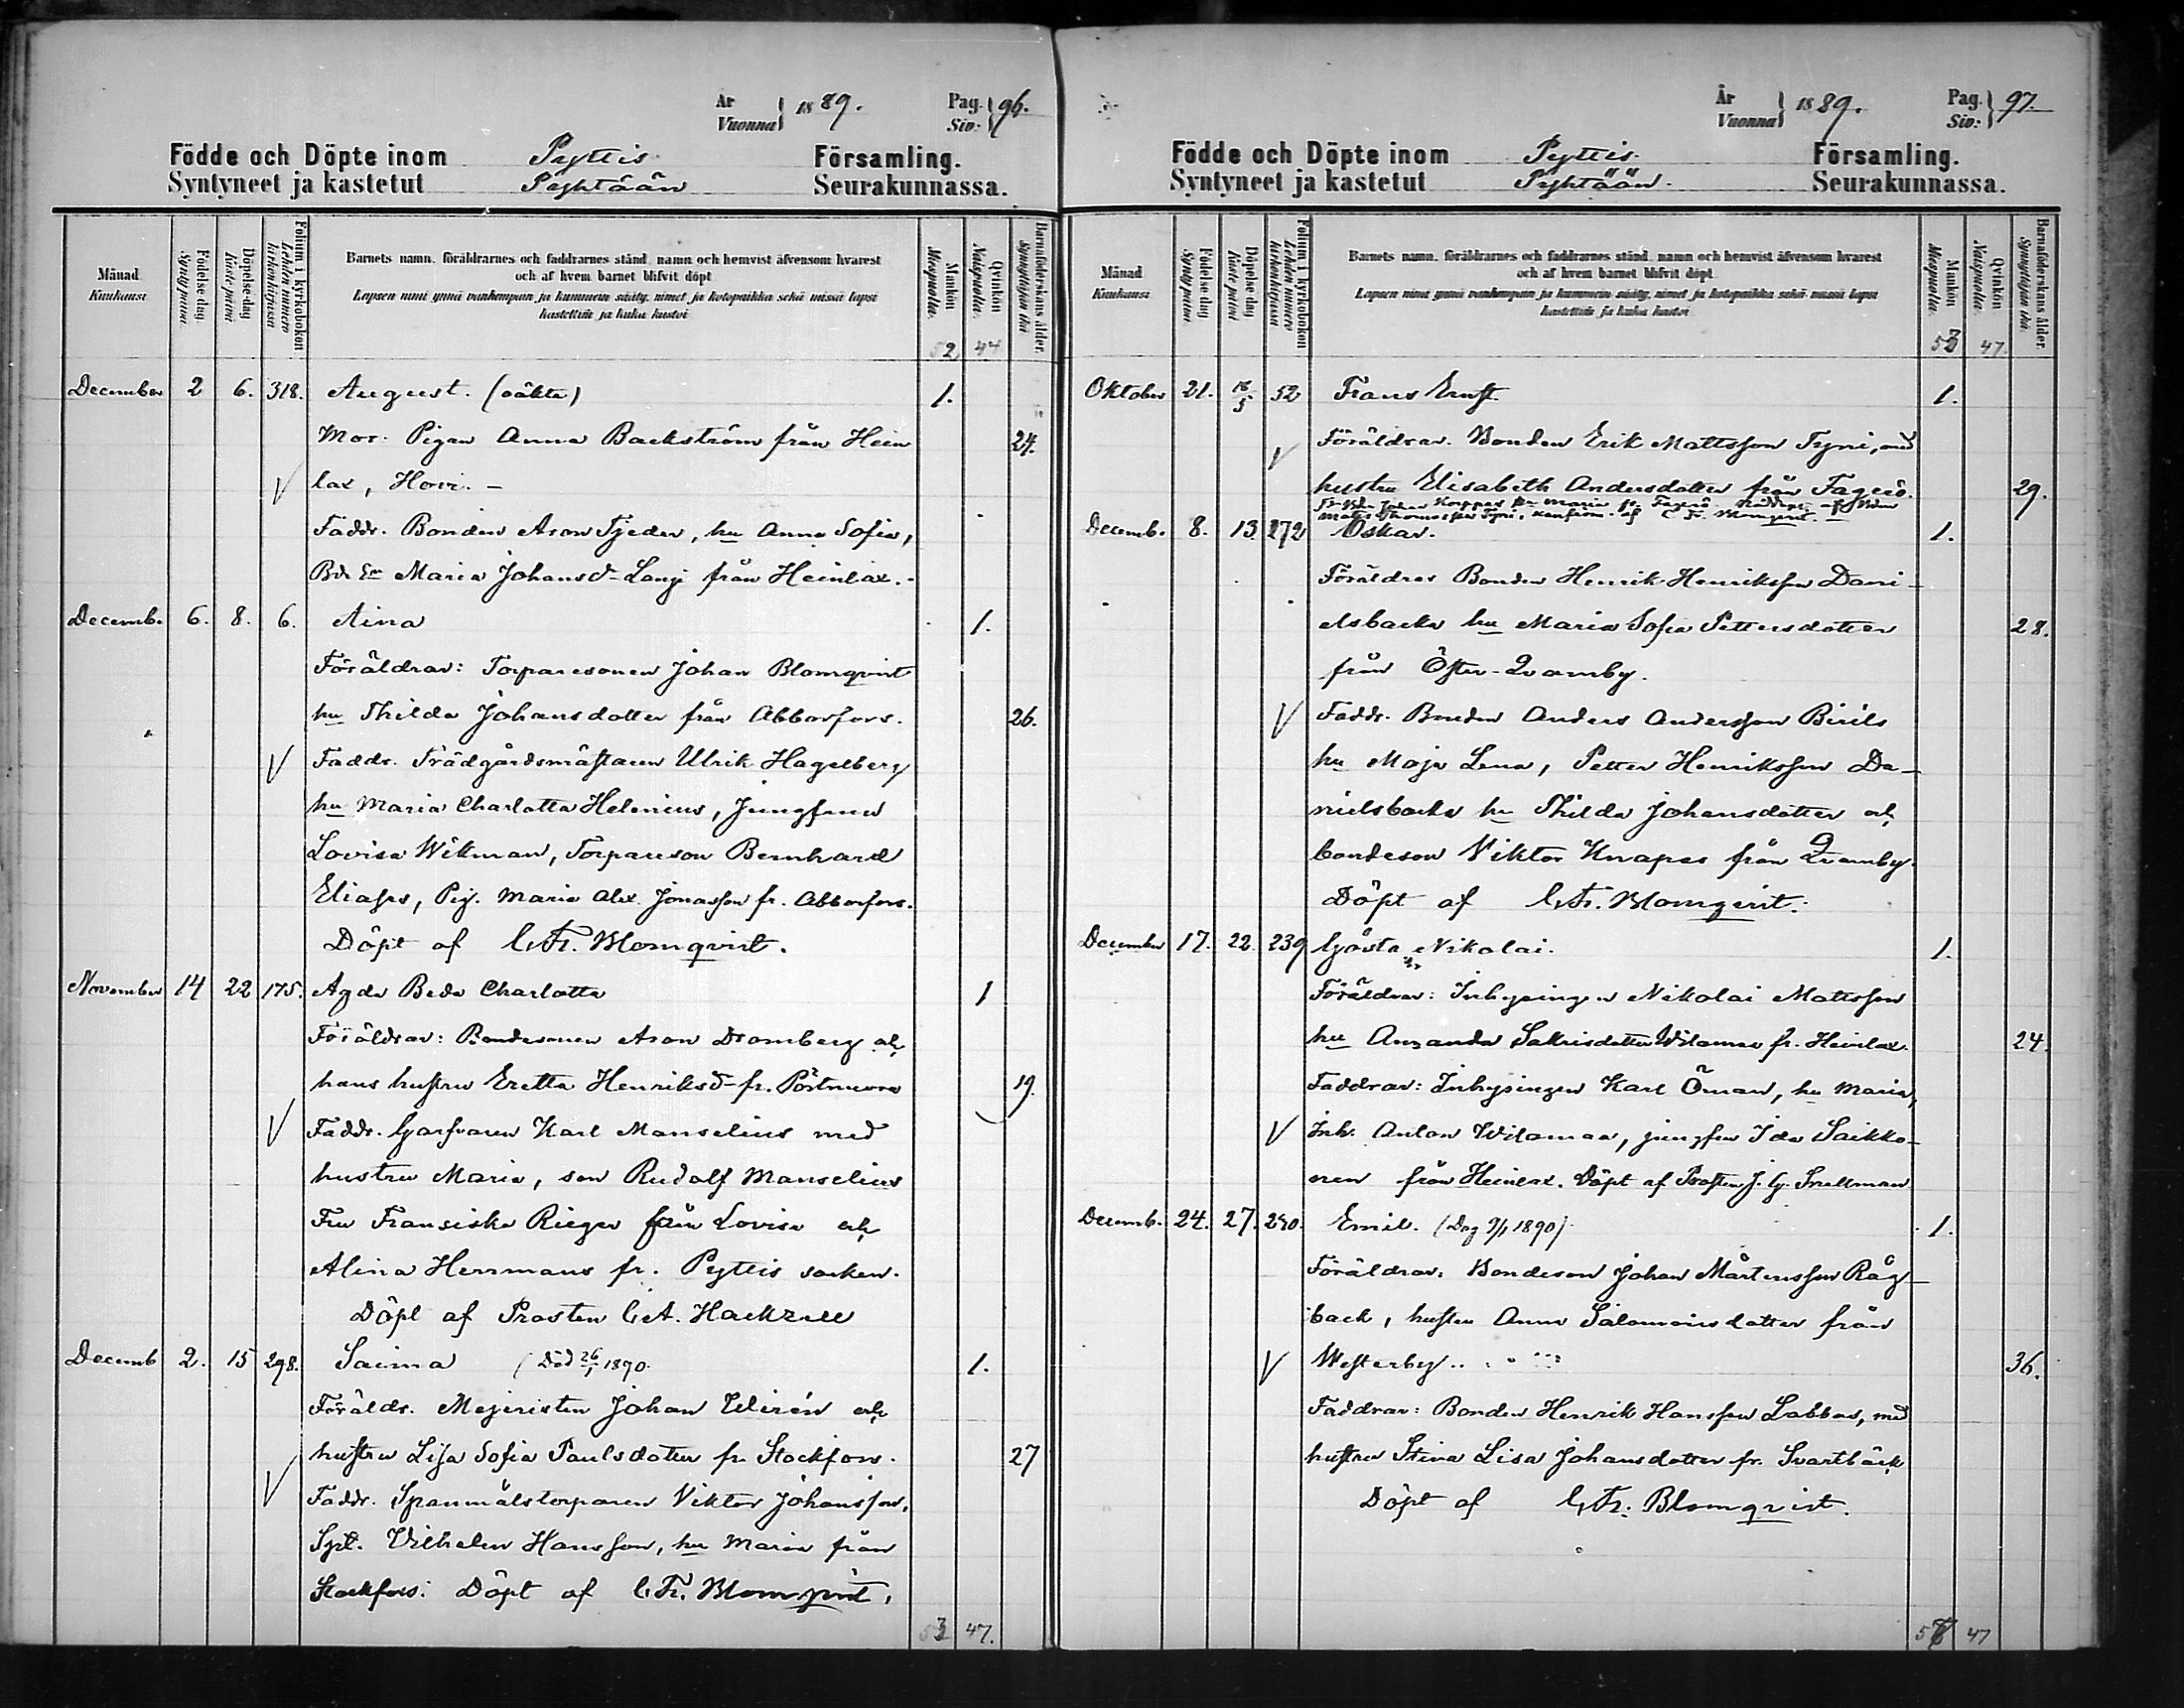 År
Vuonna
1889.
Pag.
Siv:
96.
Födde och Döpte inom Pyttis Församling.
Syntyneet ja kastetut Pyhtään Seurakunnassa.
Månad
Kuukausi
Födelse dag.
Synty päivä
Döpelse-dag
Kaste päivä
Folium i kyrkoboken
Lehden numero kirkonkirjassa
Barnets namn, föräldrarnes och faddrarnes stånd, namn och hemvist äfvensom hvarest
och af hvem barnet blifvit döpt.
Lapsen nimi ynnä vanhempain ja kummein sääty, nimet ja kotopaikka sekä missä lapsi
kastettiin ja kuka kastoi
Mankön
Miespuolia.
Qvinkön
Vaispuolia.
Barnaföderskans ålder.
Synnyttäjän ikä
52 44
December 2 6. 318. August. (oäkta) 1.
Mor: Pigan Anna Backström från Hein 24.
lax, Hovi. –
Faddr. Bonden Aron Tjeder, hu Anna Sofia,
Bd. En Maria Johansd- Langi från Heinlax. -
Decemb. 6. 8. 6. Aina 1.
Föräldrar: Torparesonen Johan Blomqvist
hu Thilda Johansdotter från Abborfors. 26.
Fadds. Trädgårdsmästaren Ulrik Hagelberg
hu Maria Charlotta Helenius, Jungfrun
Lovisa Wikman, Torpareson Bernhard
Eliass, Pig. Maria Alex. Jonasson fr. Abborfors.
Döpt af C. Fr. Blomqvist.
November 14 22 175. Agda Beda Charlotta 1
Föräldrar: Bondesonen Aron Dromberg och
hans hustru Eretta Henriksd- fr. Pörtnuora 19.
Faddr. Garfvaren Karl Manselius med
hustru Maria, son Rudolf Manselius
Fru Fransiska Rieger från Lovisa och
Alina Herrmans fr. Pyttis socken.
Döpt af Prosten C. A. Hackzell
Decemb 2. 15 298. Saima (Död 26/1 1890. 1.
Förälds. Mejeristen Johan Widén och
hustru Lisa Sofia Paulsdotter fr. Stockfors. 27
Faddr. Spanmålstorparen Viktor Johansson,
Spt. Wilhelm Hansson, hu Maria från
Stockfors. Döpt af C. Fr. Blomqvist.
53 47.
År
Vuonna
1889.
Pag.
Siv:
97.
Födde och Döpte inom Pyttis Församling.
Syntyneet ja kastetut Pyhtään. Seurakunnassa.
Månad
Kuukausi
Födelse dag
Synty päivä
Döpelse dag
Kaste päivä
Folium i kyrkoboken
Lehden numero kirkonkirjassa
Barnets namn, föräldrarnes och faddrarnes stånd, namn och hemvist äfvensom hvarest
och af hvem barnet blifvit döpt.
Lapsen nimi ynnä vanhempain ja kummein sääty, nimet ja kotopaikka sekä missä lapsi
kastettiin ja kuka kastoi
Mankön
Miespuolia.
Qvinkön
Vaispuolia.
Barnaföderskans ålder.
Synnyttäjän ikä.
53 47.
Oktober 21. 52 Frans Ernst. 1.
Föräldrar. Bonden Erik Mattsson Tyni, med
hustru Elisabeth Andersdotter från Fagerö. 29.
Johan Koppas Maria fr. Fagerö
Tyni, af C. Fr. Blomqvist. –
Decemb. 8. 13. 272 Oskar. 1.
Föräldrar Bonden Henrik Henriksson Dani-
elsbacka hu Maria Sofia Pettersdotter 28.
från Öster-Qvarnby.
Fadds. Bonden Anders Andersson Birils
hu Maja Lena, Petter Henriksson Da-
nielsbacka hu Thilda Johansdotter och
bondeson Viktor Knapas från Qvarnby.
Döpt af C. Fr. Blomqvist.
December 17. 22. 239 Gösta Nikolai. 1.
Föräldrar: Inhysingen Nikolai Mattsson
hu Amanda Sakrisdotter Widamaa fr. Heinlax. 24.
Faddrar: Inhysingen Karl Öman, hu Maria,
Inh. Anton Widamaa, jungfru Ida Saikko-
nen från Heinlax. Döpt af Prosten J. G. Snellman
Decemb. 24. 27. 240. Emil. (Dog 9/1 1890) 1.
Föräldrar. Bondeson Johan Mårtensson Råg-
back, hustru Anna Salomonsdotter från
Westerby.. 36.
Faddrar: Bonden Henrik Hansson Labbas, med
hustru Stina Lisa Johansdotter fr. Svartbäck
Döpt af C. Fr. Blomqvist.
57 47